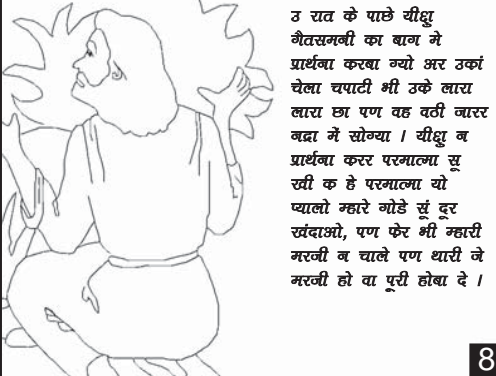 उ रात के पाछे यीशु
गैतसमनी का बाग मे
प्रार्थना करबा ग्यो अर उकां
चेला चपाटी भी उके लारा
लारा छा पण वह वठी जारर
नद्रा में सोग्या । यीशु न
प्रार्थना करर परमात्मा सू
खी क हे परमात्मा यो
प्यालो म्हारे गोडे सूं दूर
खंदाओ, पण फेर भी म्हारी
मरजी न चाले पण थारी जे
मरजी हो वा पूरी होबा दे ।
8